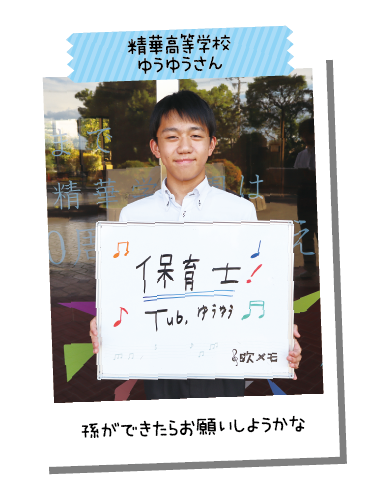 精華高等学校
ゆうゆうさん
まで
精華
は
え
保育士!
Tub. ゆうゆう
吹メモ
孫ができたらお願いしようかな